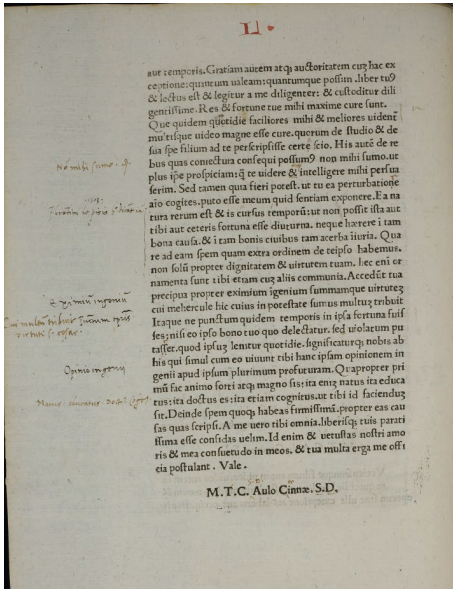 LI.
aut temporis. Gratiam autem atq; auctoritatem cuz hac ex
ceptione: quintum ualeam: quantumque possum. liber tu9
& lectus est & legitur a me diligenter: & custoditur dili
gentissime. Res & fortune tue mihi maxime cure sunt.
Que quidem quottidie faciliores mihi & meliores uident
multisque uideo magne esse cure. quorum de studio & de
sua spe filium ad te perscripsisse certe scio. His autē de re
bus quas coniectura consequi possum9 non mihi sumo. ut
plus ip̄e prospiciam: q̄ te uidere & intelligere mihi persua
serim. Sed tamen quia fieri potest. ut tu ea perturbatione
aīo cogites. puto esse meum quid sentiam exponere. Ea na
tura rerum est & is cursus temporū: ut non possit ista aut
tibi aut ceteris fortuna esse diuturna. neque hærere ī tam
bona causa. & ī tam bonis ciuibus tam acerba iīuria. Qua
re ad eam spem quam extra ordinem de teipso habemus.
non solū propter dignitatē & uirtutem tuam. hec enī or
namenta sunt tibi etiam cuz aliis communia. Accedūt tua
precipua propter eximium igenium summamque uirtutez
cui mehercule hic cuius in potestate sumus multuz tribuit
Itaque ne punctum quidem temporis in ipsa fortuna fuis
ses: nisi eo ipso bono tuo quo delectatur. sed uiolatum pu
tasset. quod ipsuz lenitur quotidie. significaturq; nobis ab
his qui simul cum eo uiuunt tibi hanc ipsam opinionem in
genii apud ipsum plurimum profuturam. Quapropter pri
mū fac animo forti atq; magno sis: ita enīz natus ita educa
tus: ita doctus es: ita etiam cognitus. ut tibi id facienduz
sit. Deinde spem quoq; habeas firmissimā. propter eas cau
sas quas scripsi. A me uero tibi omnia. liberisq; tuis parati
ssima esse confidas uelim. Id enim & uetustas nostri amo
ris & mea consuetudo in meos. & tua multa erga me offi
cia postulant. Vale.
M.T.C. Aulo Cinnæ. S.D.
No mihi sumo.
Opinio ingenij